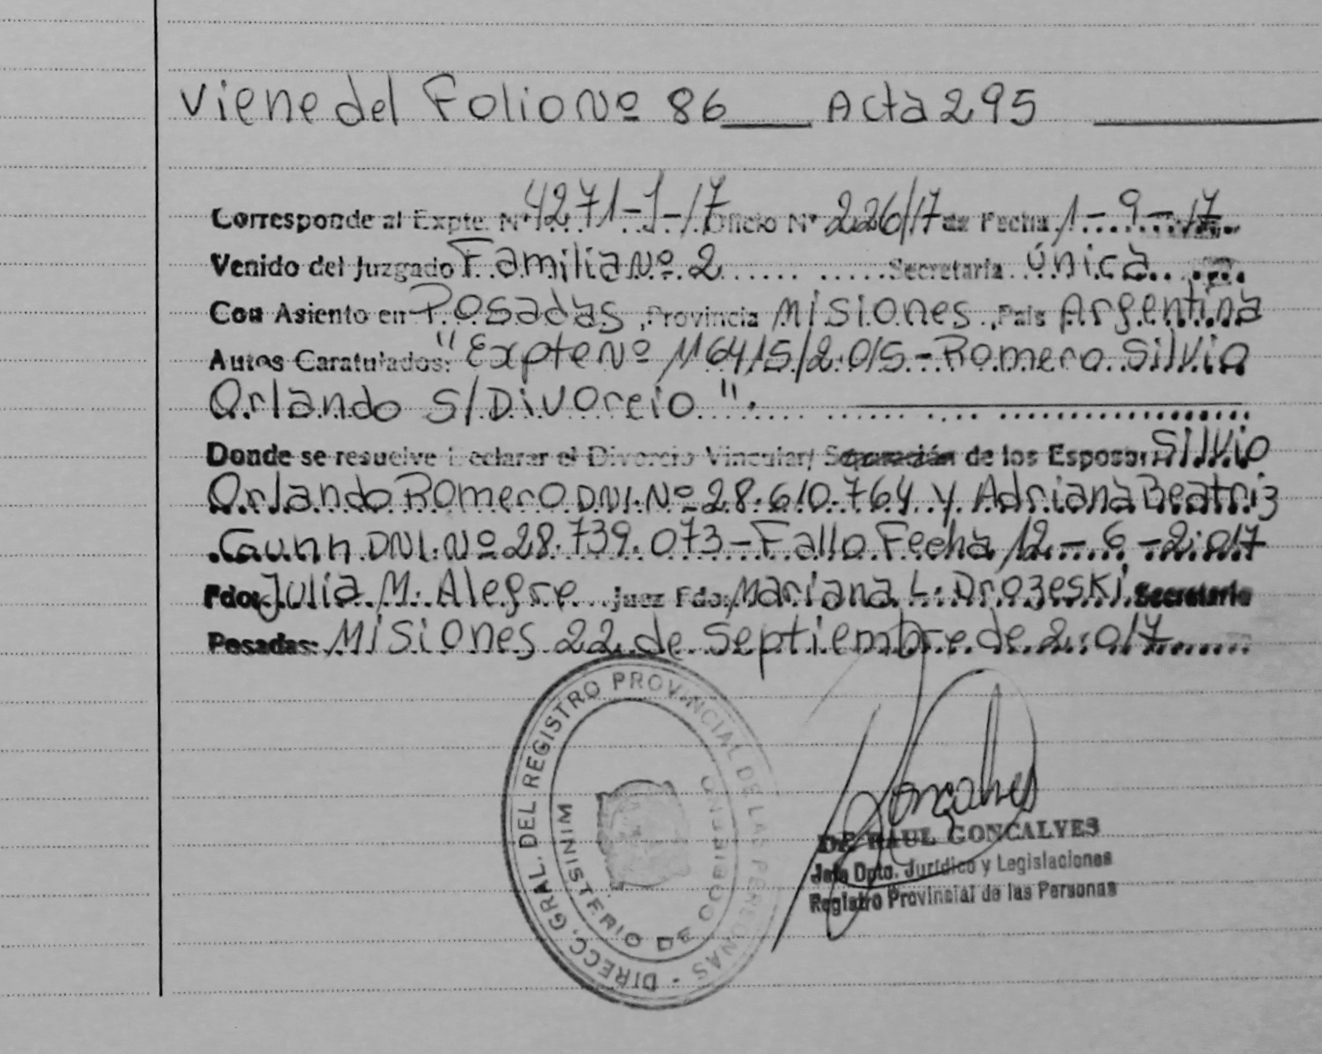 Viene del Folio Nº 86 ___ Acta 295 ______
Corresponde al Expte. Nº 4271-J-17 Oficio Nº 226/17 de Fecha 1-9-17
Venido del Juzgado Familia Nº 2 Secretaria Única
Con Asiento en Posadas, Provincia Misiones, Pais Argentina
Autos Caratulados: "Expte Nº 116415/2.015-Romero Silvio
Orlando S/Divorcio".
Donde se resuelve Declarar el Divorcio Vincular/ Separación de los Esposos: Silvio
Orlando Romero DNI. Nº 28.610.764 y Adriana Beatriz
Gunn DNI. Nº 28.739.073-Fallo Fecha 12-6-2.017
Fdo: Julia M. Alegre juez Fdo: Mariana L. Drozeski Secretario
Posadas: Misiones 22 de Septiembre de 2.017
DIRECC. GRAL. DEL REGISTRO PROVINCIAL DE LAS PERSONAS -
MINISTERIO DE GOBIERNO
Goncalves
Dr. RAUL GONCALVES
Jefe Dpto. Jurídico y Legislaciones
Registro Provincial de las Personas